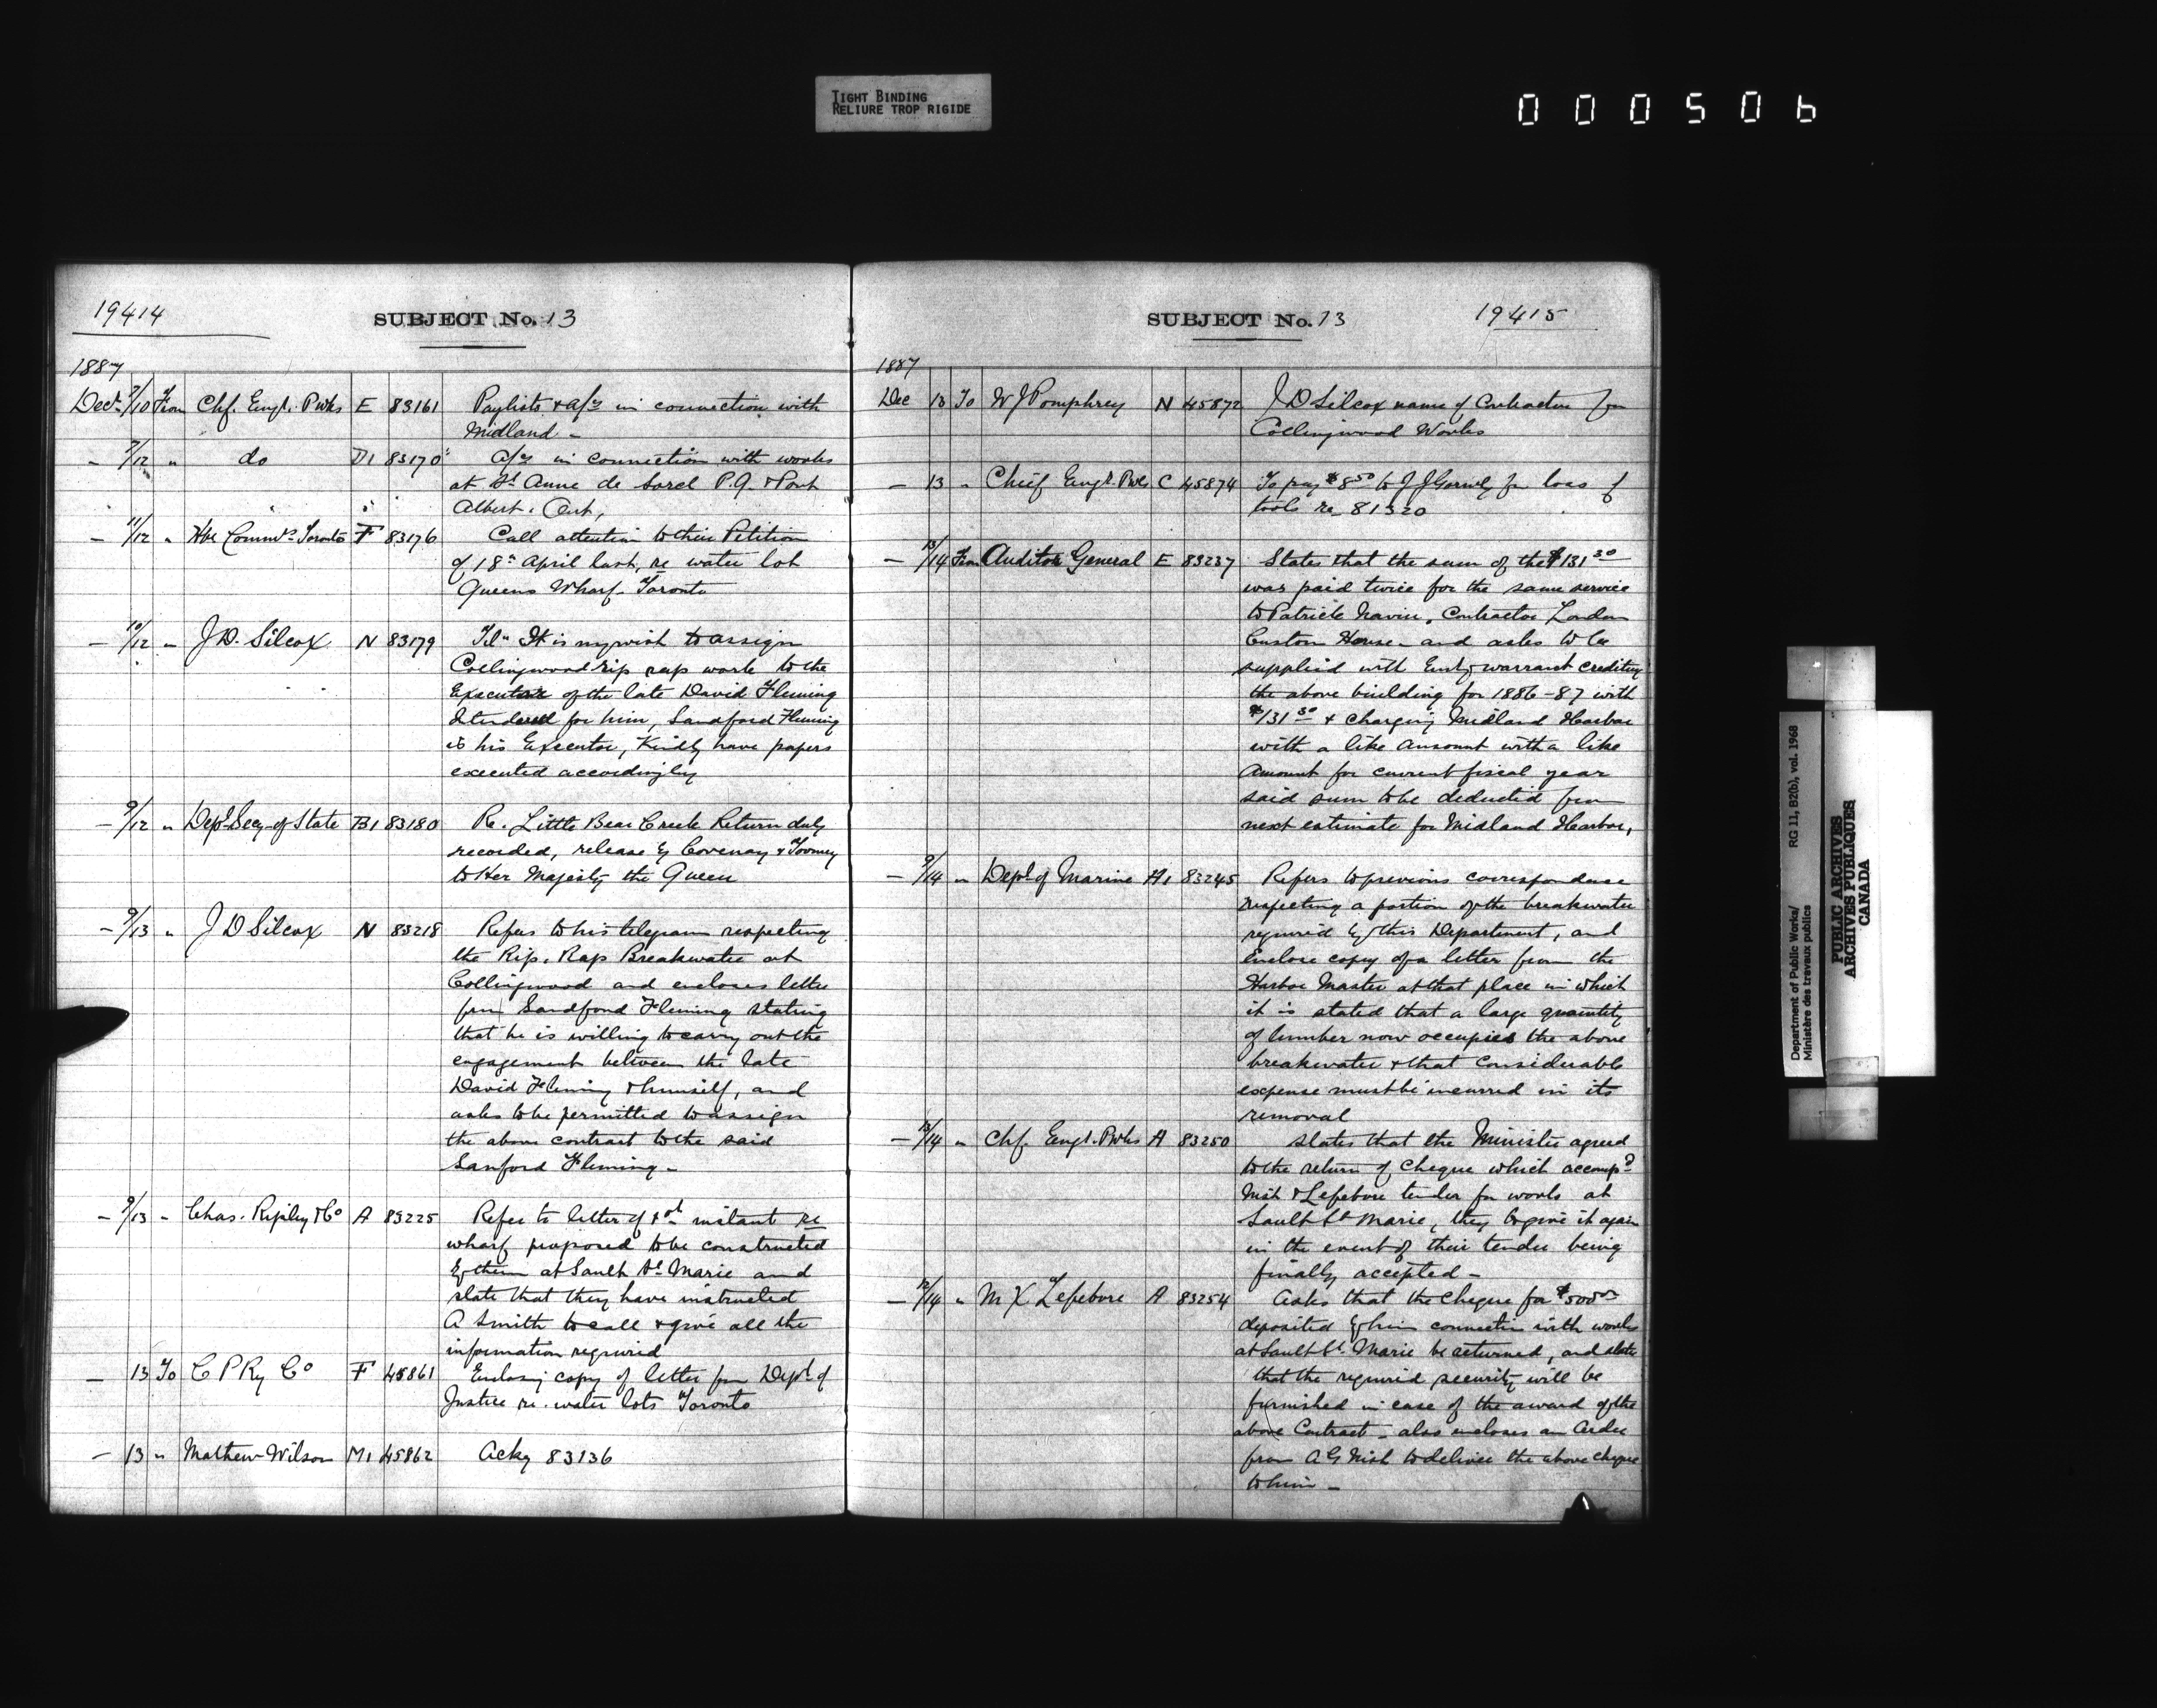 TIGHT BINDING
RELIURE TROP RIGIDE
000506
19414
SUBJECT No. 13
1887
Decr 7/10 From Chf. Engr. P Wks E 83161 Paylists & a/cs in connection with
Midland –
– 7/12 " do D1 83170 a/cs in connection with works
at St Anne de Sorel P.Q. & Port
Albert. Ont,
– 11/12 " Hbr Commrs Toronto F 83176 Call attention to their Petition
of 18th April last, re water lot
Queens Wharf – Toronto
– 10/12 " J D. Silcox N 83179 Tel" It is my wish to assign
Collingwood rip rap work to the
Executor of the late David Fleming
I tendered for him, Sandford Fleming
is his Executor, Kindly have papers
executed accordingly
– 9/12 " Dept Secy of State B1 83180 Re. Little Bear Creek Return duly
recorded, release by Covenay & Toomey
to Her Majesty the Queen
– 9/13 " J D Silcox N 83218 Refers to his telegram respecting
the Rip. Rap Breakwater at
Collingwood and encloses letter
from Sandford Fleming stating
that he is willing to carry out the
engagement between the late
David Fleming & himself, and
asks to be permitted to assign
the above contract to the said
Sanford Fleming –
– 9/13 " Chas. Ripley & Co A 83225 Refer to letter of instant re
wharf proposed to be constructed
by them at Sault St Marie and
state that they have instructed
A Smith to call & give all the
information required
– 13 To C P Ry Co F 45861 Enclosing copy of letter from Dept of
Justice re. water lots Toronto
– 13 " Mathew Wilson M1 45862 Ackg 83136
SUBJECT No. 13
19415
1887
Dec 13 To W J Pomphrey N 45872 J D Silcox name of Contractor for
Collingwood Works
– 13 " Chief Engr. P Wks C 45874 To pay $8 50 to J J for loss of
tools re 81320
– 13/14 From Auditor General E 83237 States that the sum of the $131 30
was paid twice for the same service
to Patrick Navin, Contractor London
Custom House – and asks to be
supplied with Entry warrant crediting
the above building for 1886–87 with
$131 30 & charging Midland Harbor
with a like amount with a like
Amount for current fiscal year
said sum to be deducted from
next estimate for Midland Harbor,
– 9/14 " Dept of Marine A1 83245 Refers to previous correspondence
respecting a portion of the breakwater
required by this Department, and
Enclose copy of a letter from the
Harbor Master at that place in which
it is stated that a large quantity
of lumber now occupies the above
breakwater & that considerable
expense must be incurred in its
removal
– 13/14 " Chf. Engr. P Wks A 83250 States that the Minister agreed
to the return of cheque which accompd
Nish & Lefebvre tender for works at
Sault St Marie, they to give it again
in the event of their tender being
finally accepted –
– 12/14 " M X Lefebvre A 83254 Asks that the cheque for $500 00
deposited by him connection with works
at Sault St. Marie be returned, and states
that the required security will be
furnished in case of the award of the
above Contract – also encloses an order
from A G Nish to deliver the above cheque
to him –
Department of Public Works/
Ministère des travaux publics
RG 11, B2(b), vol. 1968
PUBLIC ARCHIVES
ARCHIVES PUBLIQUES
CANADA